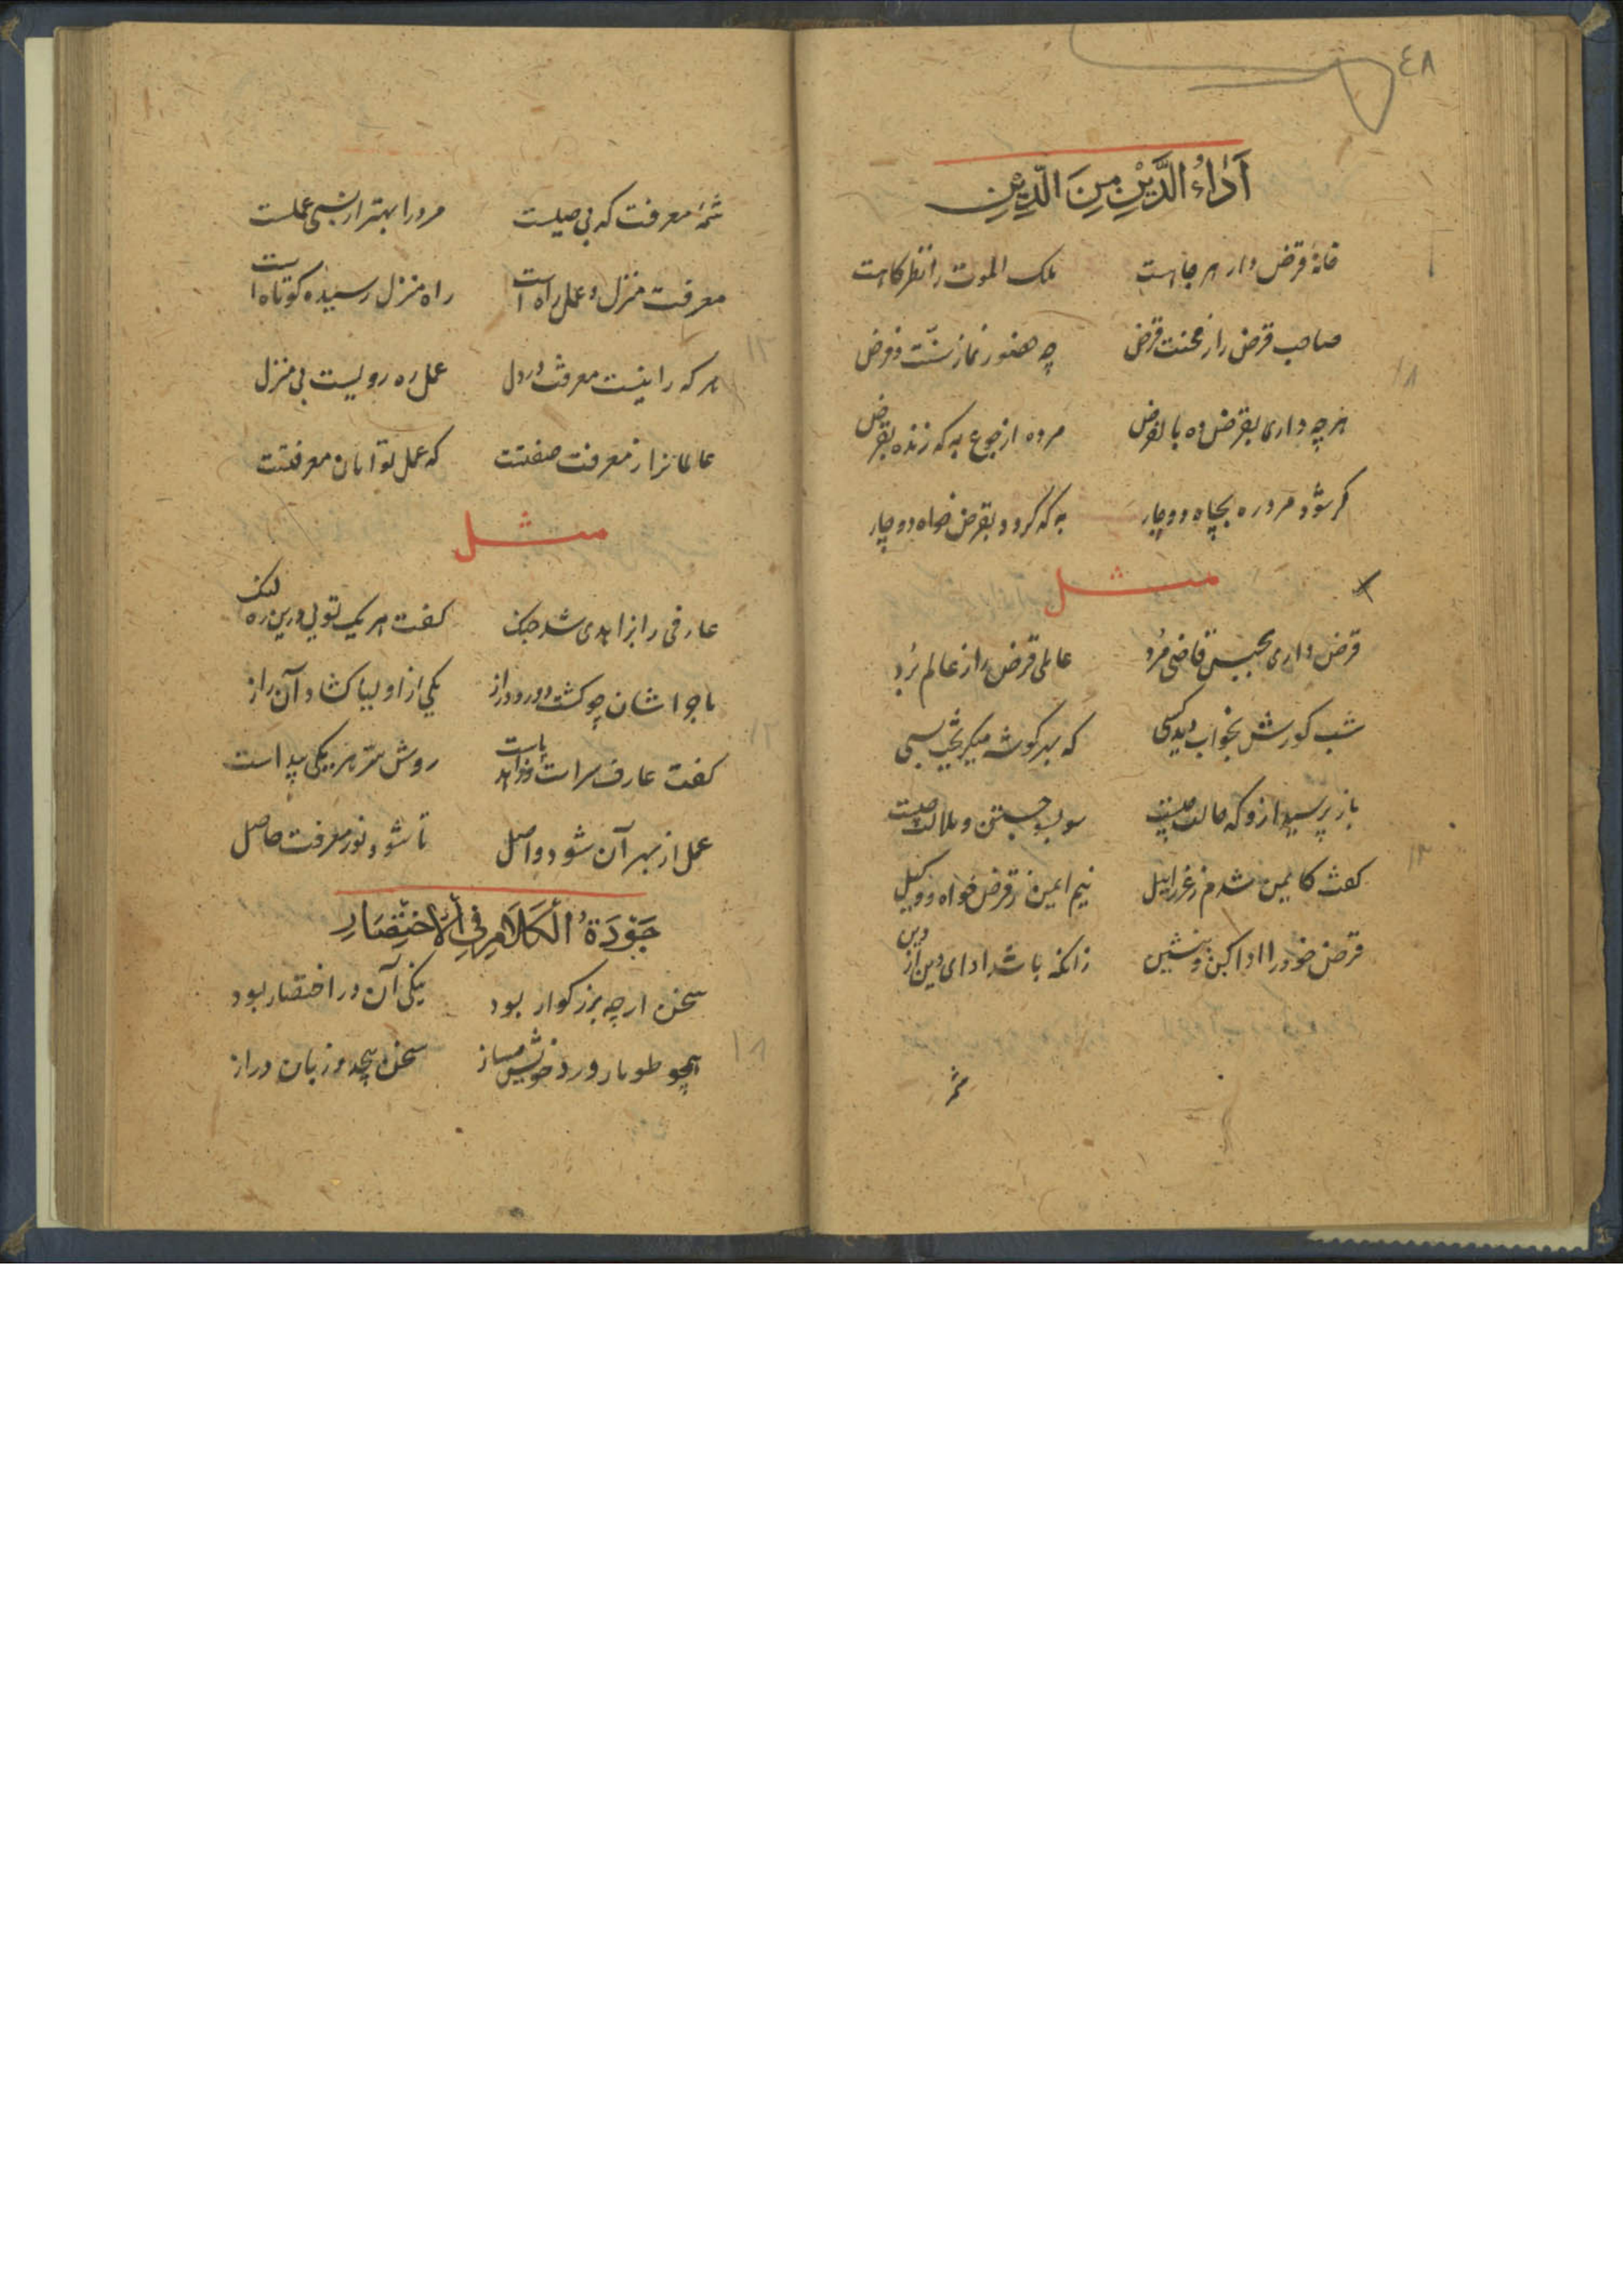 ٤٨
اَدَاءُ الدَّيْنِ مِنَ الدِّيْنِ
خانهٔ قرض دار هر جا هست ملک الموت را نظرکاهست
صاحب قرض را ز محنت قرض چه حضور نماز سنّت و فرض
هرچه داری بقرض ده بالفرض مرده از جوع به که زنده بقرض
کر شود مرد ره بچاه دوچار به که کردد بقرض خواه دوچار
مثل
قرض داری بحبس قاضی مُرد عالمی قرض را ز عالم بُرد
شب کورش بخواب دید کسی که بهر کوشه میکریخت بسی
باز پرسید ازو که حالت چیست سوبسو جستن و ملالت چیست
کفت کایمن شدم ز عزرائیل نیم ایمن ز قرض خواه و وکیل
قرض خود را ادا کن و بنشین زانکه باشد ادای دین از دین
شمهٔ
شمهٔ معرفت که بی حیلست مرد را بهتر از بسی عملست
معرفت منزل و عمل راه است راه منزل رسیده کوتاه است
هر که را نیست معرفت در دل عمل ره رویست بی منزل
عالمانرا ز معرفت صفتست که عمل توامان معرفتست
مثل
عارفی را بزاهدی شد جنک کفت هر یک تویی درین ره لنک
ماجراشان چو کشت دور و دراز یکی از اولیا کشاد آن راز
کفت عارف سراست و زاهد پاست روش سر ز هر یکی پیداست
عمل از بهر آن شود واصل تا شود نور معرفت حاصل
جَوْدَةُ الْكَلَامِ فِي الْاخْتِصَارِ
سخن ارچه بزرکوار بود نیکی آن در اختصار بود
همچو طومار ورد خویش مساز سخن پیچ پیچ و زبان دراز